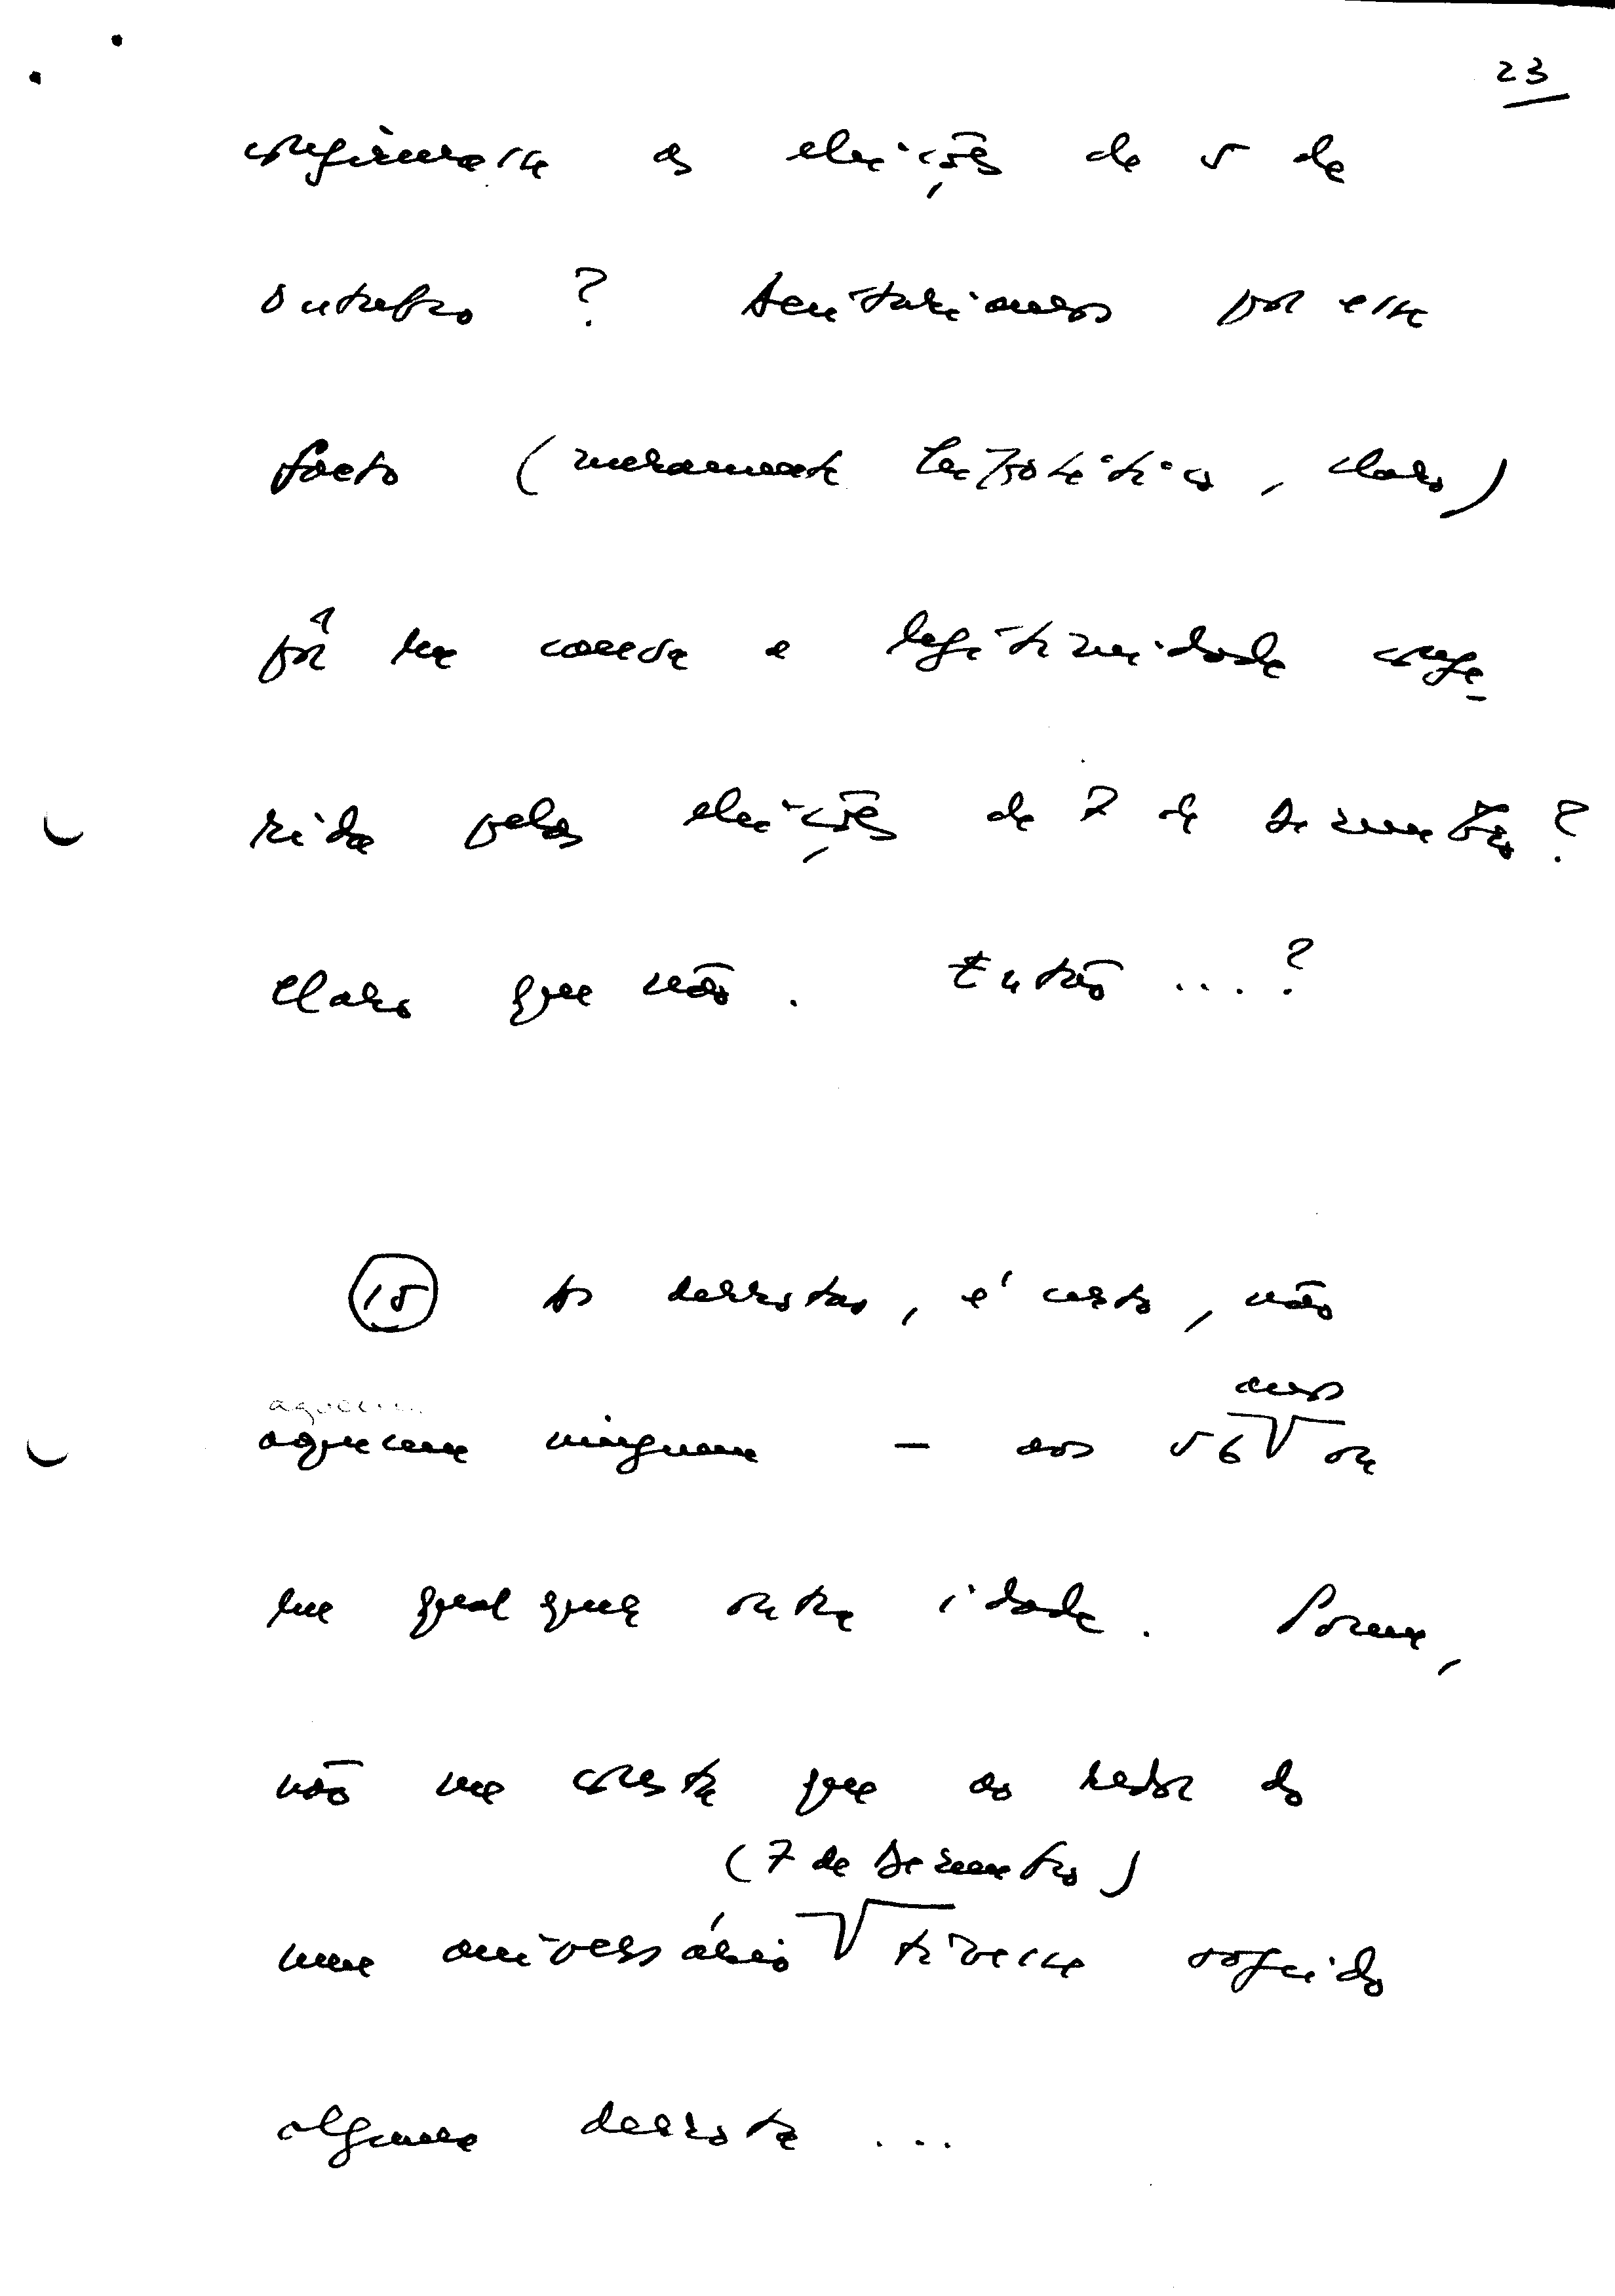 23
confirmasse as eleições de 5 de
outubro ? Aceitaríamos por esse
facto (meramente hipotético, claro)
pôr em causa a legitimidade confe-
rida pelas eleições de 7 de Dezembro ?
Claro que não . Então ... ?
15 As derrotas, é certo, não
aquecem
anos
aquecem ninguem — aos 56 ou
em qualquer outra idade . Porem,
não me consta que ao redor do
(7 de Dezembro)
meu aniversário tivesse sofrido
alguma derrota ...